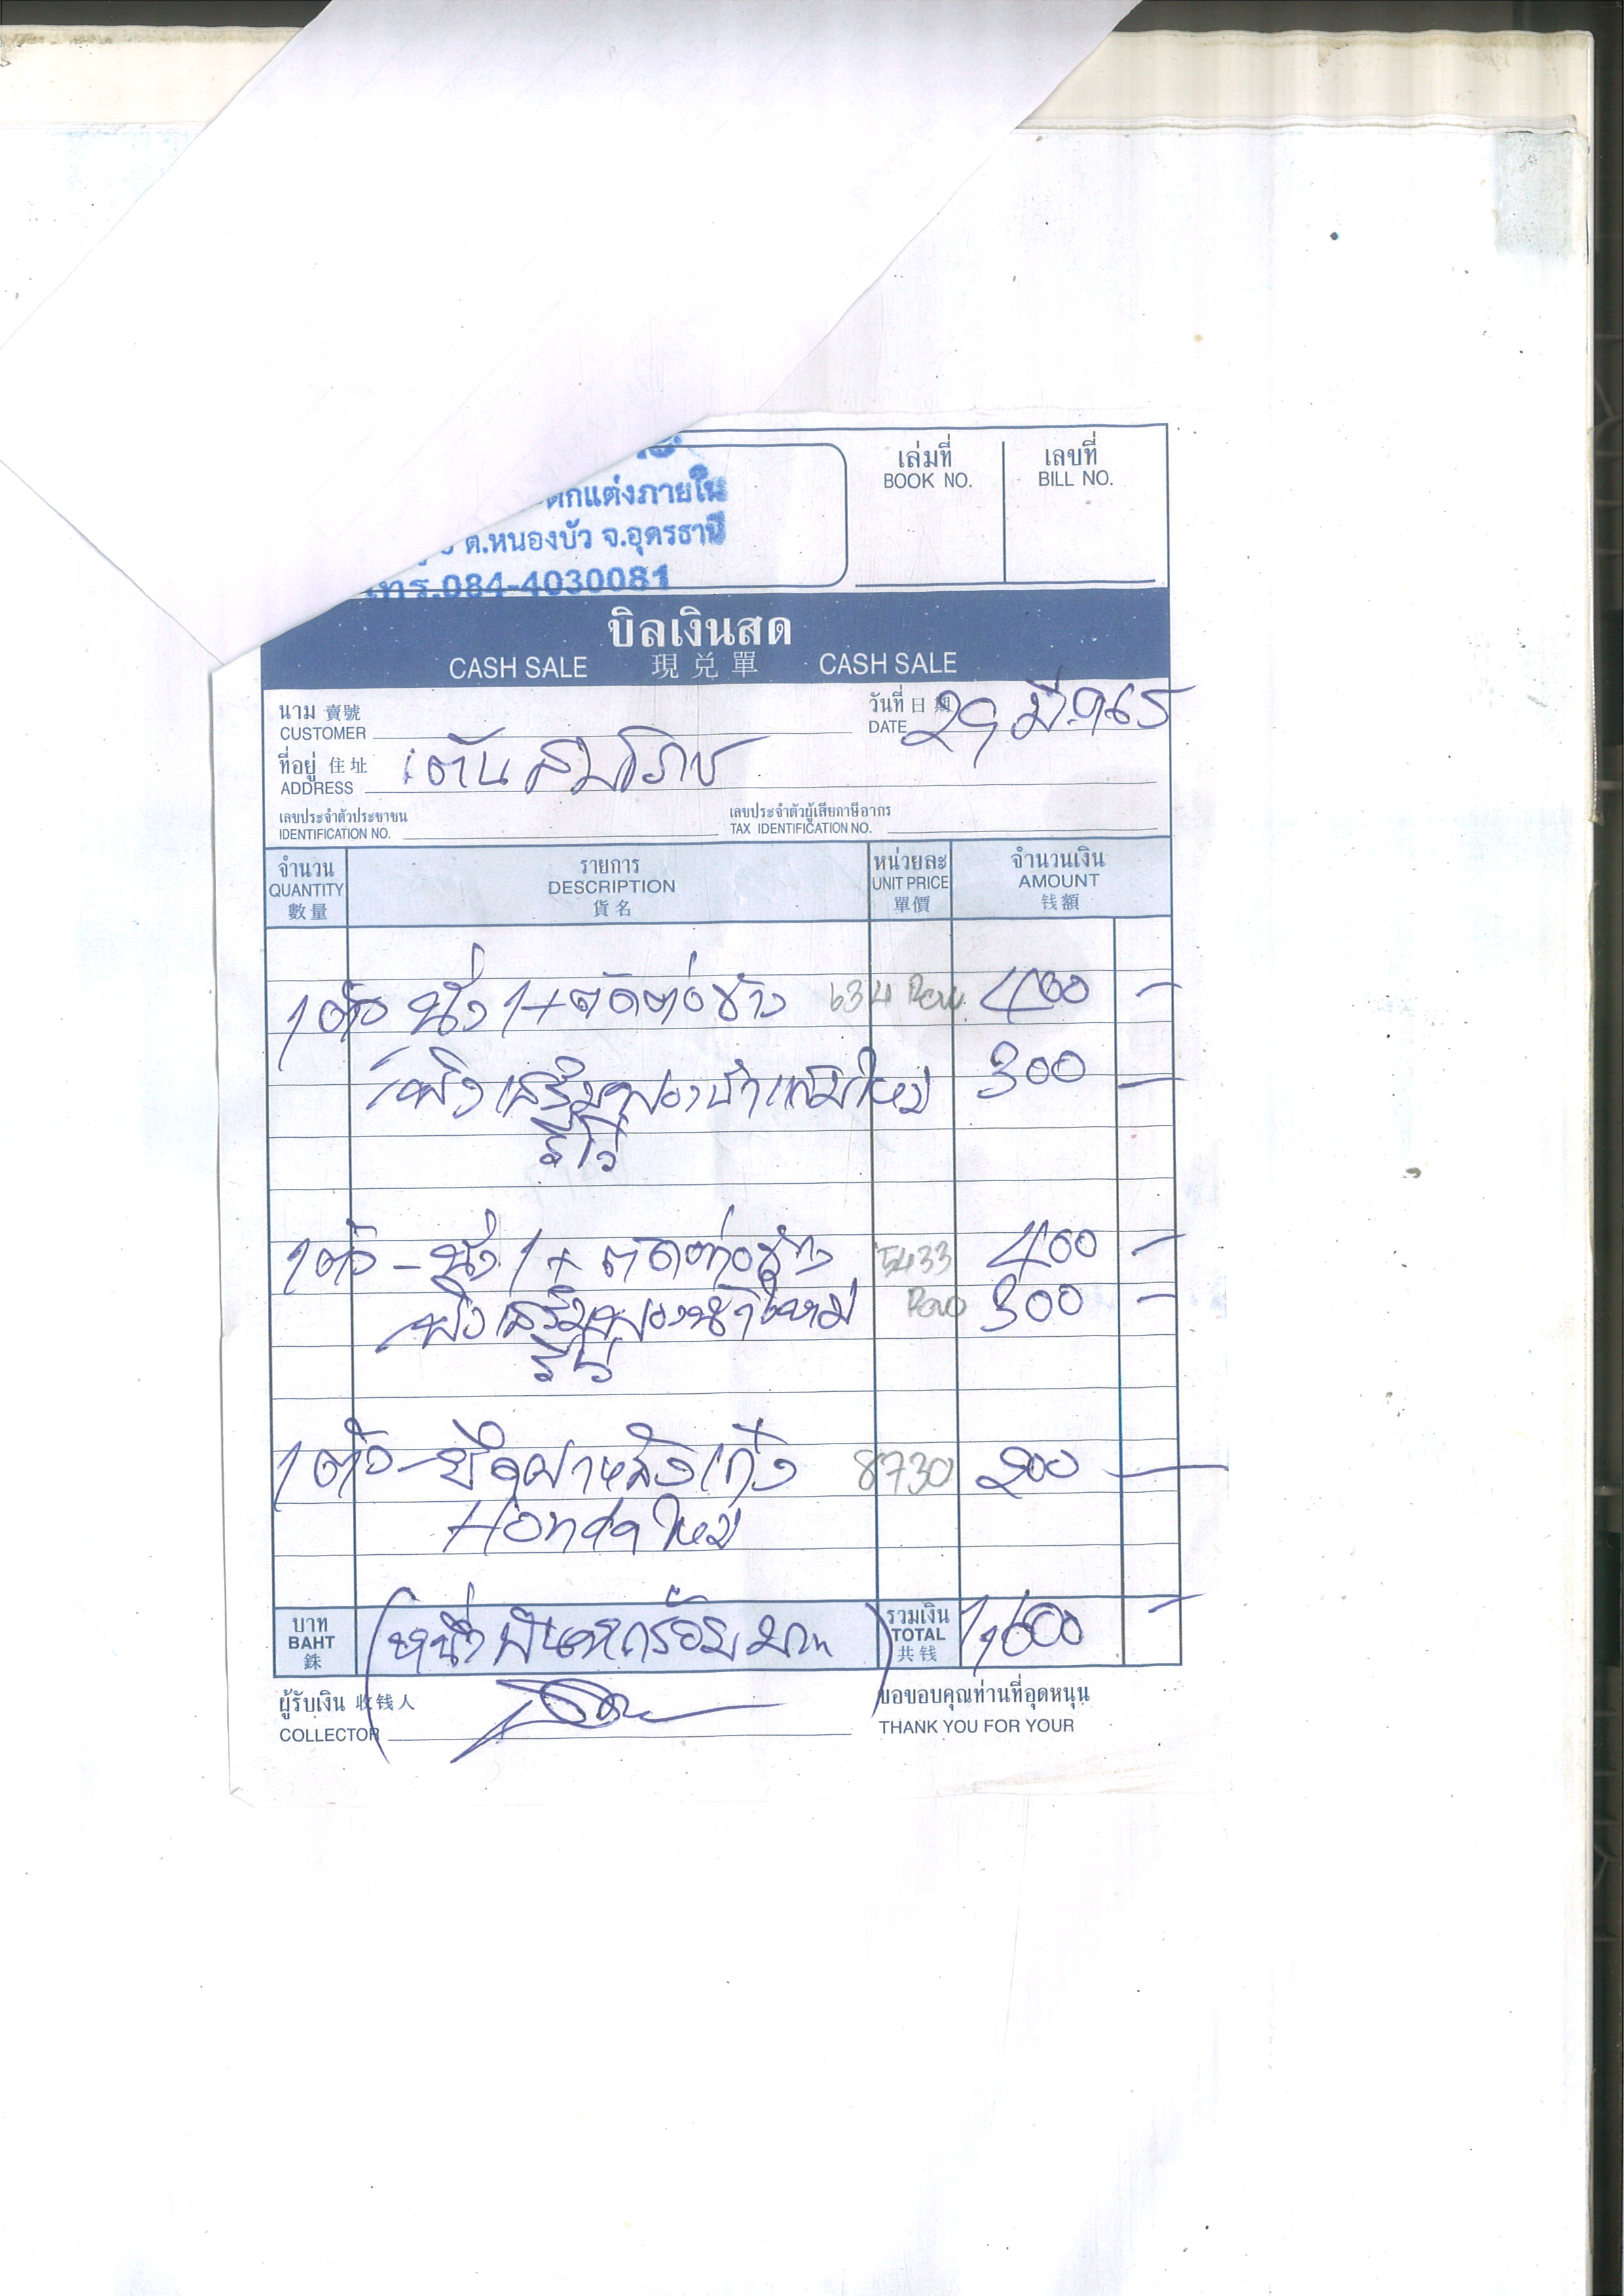 ตกแต่งภายใน
ต.หนองบัว จ.อุดรธานี
โทร.084-4030081
เล่มที่ เลขที่
BOOK NO. BILL NO.
บิลเงินสด
CASH SALE 現兑單 CASH SALE
นาม 賣號 วันที่ 日期 29 มี.ค 65
CUSTOMER DATE
ที่อยู่ 住址 เต้นสมโภช
ADDRESS
เลขประจำตัวประชาชน เลขประจำตัวผู้เสียภาษีอากร
IDENTIFICATION NO. TAX IDENTIFICATION NO.
จำนวน รายการ หน่วยละ จำนวนเงิน
QUANTITY DESCRIPTION UNIT PRICE AMOUNT
數量 貨名 單價 钱額
1 ตัว นั่ง 1 + ตัดต่อข้าง 634 400 -
พิงเสริมฟองน้ำ ใหม่ 300 -
รีโว่
1 ตัว - นั่ง 1 + ตัดต่อข้าง 5433 400 -
พิงเสริมฟองน้ำใหม่ 300 -
รีโว่
1 ตัว - ยึดผ้าหลังเก๋ง 8730 200 -
Honda ใหม่
บาท (หนึ่งพันหกร้อยบาท) รวมเงิน 1,600 -
BAHT TOTAL
銖 共钱
ผู้รับเงิน 收钱人 ขอขอบคุณท่านที่อุดหนุน
COLLECTOR THANK YOU FOR YOUR